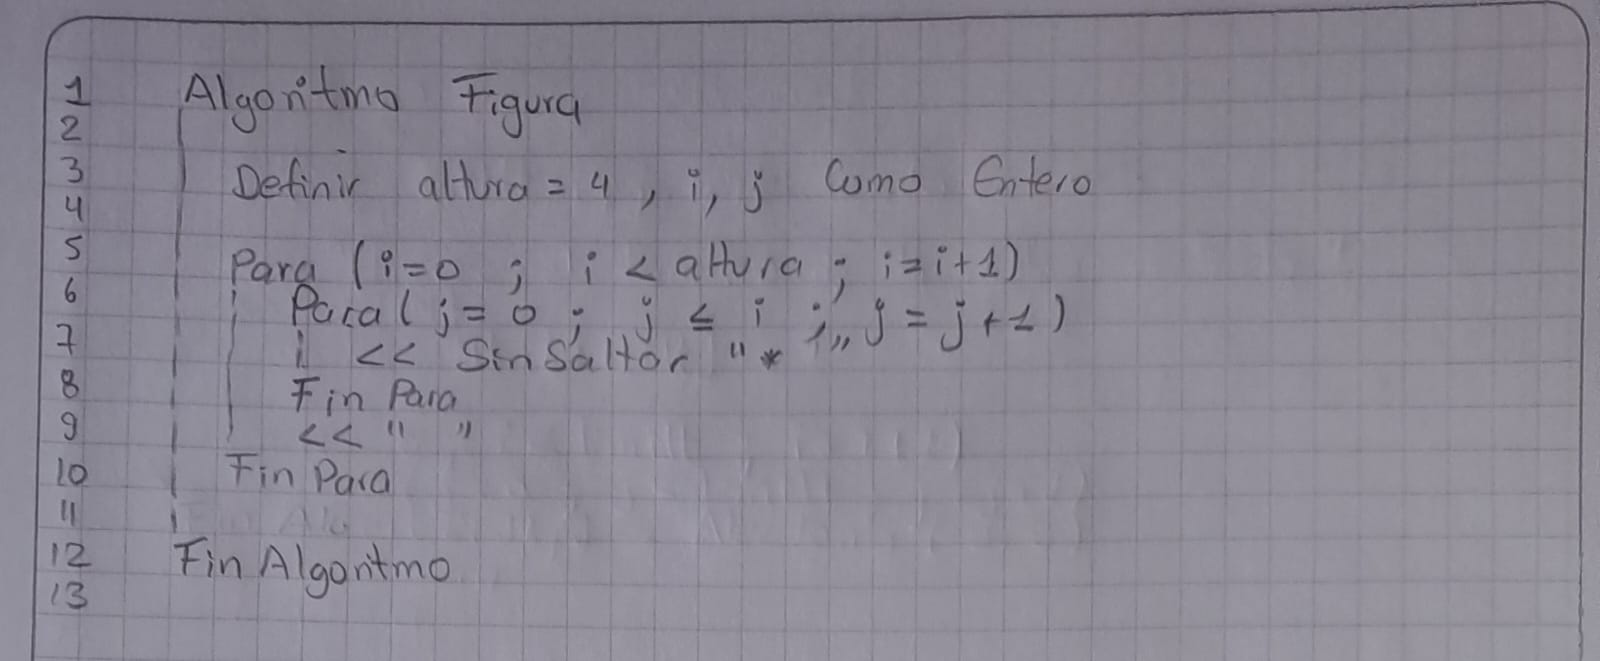 1 Algoritmo Figura
2
3 Definir altura = 4 , i, j Como Entero
4
5 Para (i=0 ; i < altura ; i=i+1)
6 Para( j= 0 ; j ≤ i ; j = j+1)
7 << Sin Saltar "* "
8 Fin Para
9 << " "
10 Fin Para
11
12 Fin Algoritmo
13